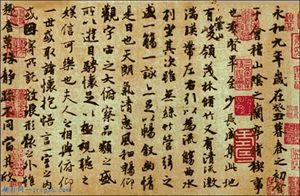 永和九年歲在癸丑暮春之初會
于會稽山陰之蘭亭脩稧事
也羣賢畢至少長咸集此地
有峻領茂林脩竹又有清流激
湍暎帶左右引以為流觴曲水
列坐其次雖無絲竹管弦之
盛一觴一詠亦足以暢敘幽情
是日也天朗氣清惠風和暢仰
觀宇宙之大俯察品類之盛
所以遊目騁懷足以極視聽之
娛信可樂也夫人之相與俯仰
一世或取諸懷抱悟言一室之內
或因寄所託放浪形骸之外雖
趣舍萬殊靜躁不同當其欣